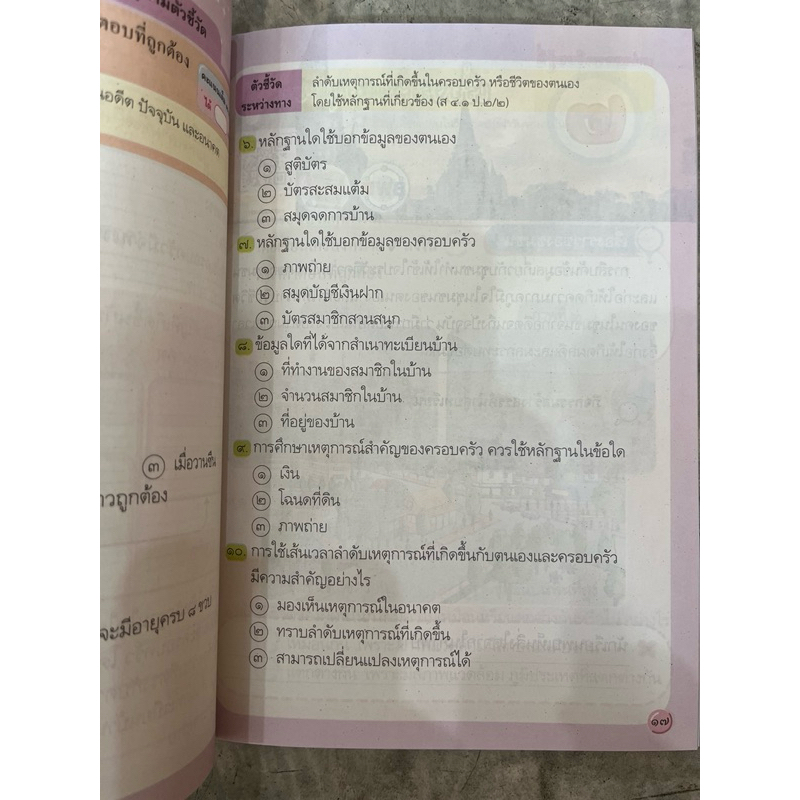 ามตัวชี้วัด
ตอบที่ถูกต้อง
นอดีต ปัจจุบัน และอนาคต
๓ เมื่อวานซืน
วถูกต้อง
จะมีอายุครบ ๘ ขวบ
ตัวชี้วัด
ระหว่างทาง
ลำดับเหตุการณ์ที่เกิดขึ้นในครอบครัว หรือชีวิตของตนเอง
โดยใช้หลักฐานที่เกี่ยวข้อง (ส ๔.๑ ป.๒/๒)
๖. หลักฐานใดใช้บอกข้อมูลของตนเอง
๑ สูติบัตร
๒ บัตรสะสมแต้ม
๓ สมุดจดการบ้าน
๗. หลักฐานใดใช้บอกข้อมูลของครอบครัว
๑ ภาพถ่าย
๒ สมุดบัญชีเงินฝาก
๓ บัตรสมาชิกสวนสนุก
๘. ข้อมูลใดที่ได้จากสำเนาทะเบียนบ้าน
๑ ที่ทำงานของสมาชิกในบ้าน
๒ จำนวนสมาชิกในบ้าน
๓ ที่อยู่ของบ้าน
๙. การศึกษาเหตุการณ์สำคัญของครอบครัว ควรใช้หลักฐานในข้อใด
๑ เงิน
๒ โฉนดที่ดิน
๓ ภาพถ่าย
๑๐. การใช้เส้นเวลาลำดับเหตุการณ์ที่เกิดขึ้นกับตนเองและครอบครัว
มีความสำคัญอย่างไร
๑ มองเห็นเหตุการณ์ในอนาคต
๒ ทราบลำดับเหตุการณ์ที่เกิดขึ้น
๓ สามารถเปลี่ยนแปลงเหตุการณ์ได้
๑๗